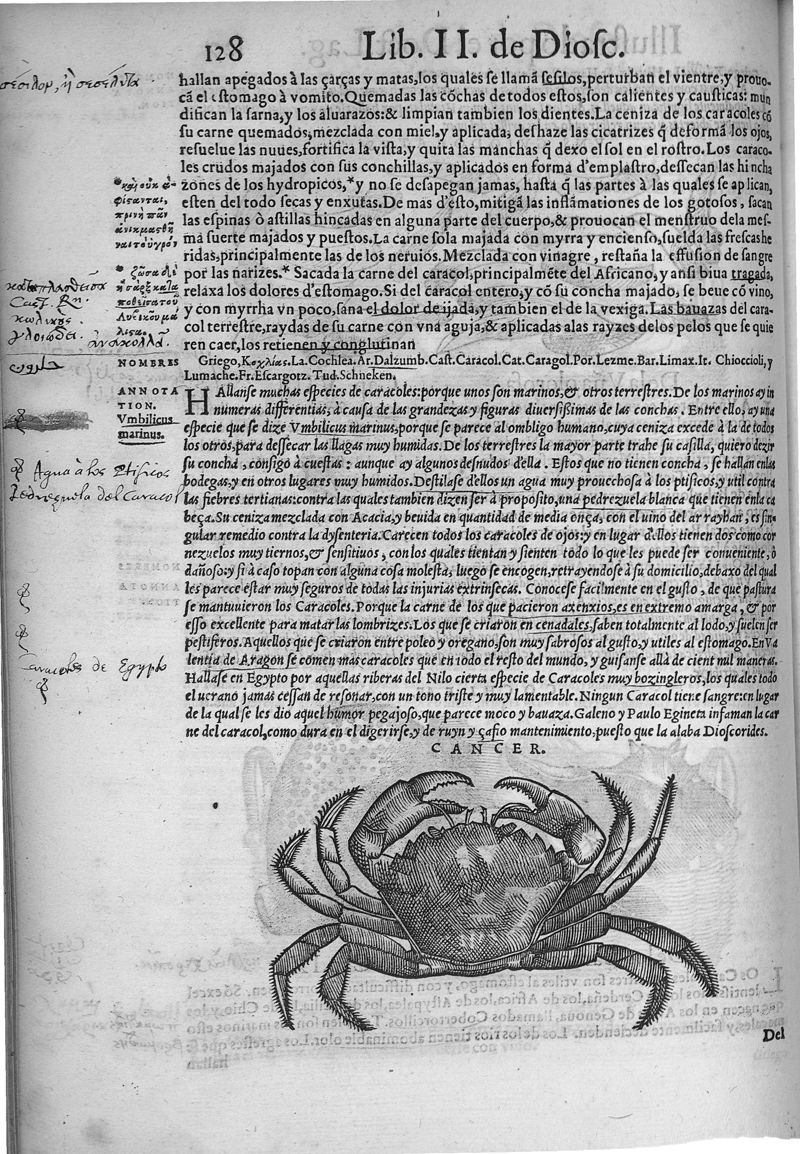 128 Lib. II. de Diosc.
hallan apegados à las çarças y matas, los quales se llamã sesilos, perturban el vientre, y prouo-
cã el estomago à vomito. Quemadas las cõchas de todos estos, son calientes y causticas: mun
difican la sarna, y los aluarazos: & limpian tambien los dientes. La ceniza de los caracoles cõ
su carne quemados, mezclada con miel, y aplicada, deshaze las cicatrizes q̃ deformã los ojos,
resuelue las nuues, fortifica la vista, y quita las manchas q̃ dexo el sol en el rostro. Los caraco-
les crudos majados con sus conchillas, y aplicados en forma d'emplastro, dessecan las hincha
zones de los hydropicos,* y no se desapegan jamas, hasta q̃ las partes à las quales se aplican,
esten del todo secas y enxutas. De mas d'esto, mitigã las inflamationes de los gotosos, sacan
las espinas ò astillas hincadas en alguna parte del cuerpo, & prouocan el menstruo dela mes-
ma suerte majados y puestos. La carne sola majada con myrra y encienso, suelda las frescas he
ridas, principalmente las de los neruios. Mezclada con vinagre, restaña la effusion de sangre
por las narizes.* Sacada la carne del caracol, principalmẽte del Africano, y ansi biua tragada,
relaxa los dolores d'estomago. Si del caracol entero, y cõ su concha majado, se beue cõ vino,
y con myrrha vn poco, sana el dolor de ijada, y tambien el de la vexiga. Las bauazas del cara-
col terrestre, raydas de su carne con vna aguja, & aplicadas alas rayzes delos pelos que se quie
ren caer, los retienen y conglutinan
NOMBRES Griego, Κοχλίας. La. Cochlea. Ar. Dalzumb. Cast. Caracol. Cat. Caragol. Por. Lezme. Bar. Limax. It. Chioccioli, y
Lumache. Fr. Escargotz. Tud. Schneken.
ANNOTA
TION.
Vmbilicus
marinus.
HAllanse muchas especies de caracoles: porque unos son marinos, & otros terrestres. De los marinos ay in
numeras differentias, à causa de las grandezas y figuras diuersissimas de las conchas. Entre ello, ay una
especie que se dize Vmbilicus marinus, porque se parece al ombligo humano, cuya ceniza excede à la de todos
los otros, para dessecar las llagas muy humidas. De los terrestres la mayor parte trahe su casilla, quiero dezir
su concha, consigo à cuestas: aunque ay algunos desnudos d'ella. Estos que no tienen concha, se hallan en las
bodegas, y en otros lugares muy humidos. Destilase d'ellos un agua muy prouechosa à los ptisicos, y util contra
las fiebres tertianas: contra las quales tambien dizen ser à proposito, una pedrezuela blanca que tienen en la ca
beça. Su ceniza mezclada con Acacia, y beuida en quantidad de media onça, con el uino del arrayhan, es sin-
gular remedio contra la dysenteria. Carecen todos los caracoles de ojos: y en lugar d'ellos tienen dos como cor
nezuelos muy tiernos, & sensitiuos, con los quales tientan y sienten todo lo que les puede ser conueniente, ò
dañoso: y si à caso topan con alguna cosa molesta, luego se encogen, retrayendose à su domicilio, debaxo del qual
les parece estar muy seguros de todas las injurias extrinsecas. Conocese facilmente en el gusto, de que pastura
se mantuuieron los Caracoles. Porque la carne de los que pacieron axenxios, es en extremo amarga, & por
esso excellente para matar las lombrizes. Los que se criaron en cenadales, saben totalmente al lodo, y suelen ser
pestiferos. Aquellos que se criaron entre poleo y oregano, son muy sabrosos al gusto, y utiles al estomago. En Va
lentia de Aragon se comen mas caracoles que en todo el resto del mundo, y guisanse allà de cient mil maneras.
Hallase en Egypto por aquellas riberas del Nilo cierta especie de Caracoles muy bozingleros, los quales todo
el uerano jamas cessan de resonar, con un tono triste y muy lamentable. Ningun Caracol tiene sangre: en lugar
de la qual se les dio aquel humor pegajoso, que parece moco y bauaza. Galeno y Paulo Egineta infaman la car
ne del caracol, como dura en el digerirse, y de ruyn y çafio mantenimiento, puesto que la alaba Dioscorides.
CANCER.
Del
Agua à los Ptisicos
Pedrezuela del Caracol
Caracoles de Egypto